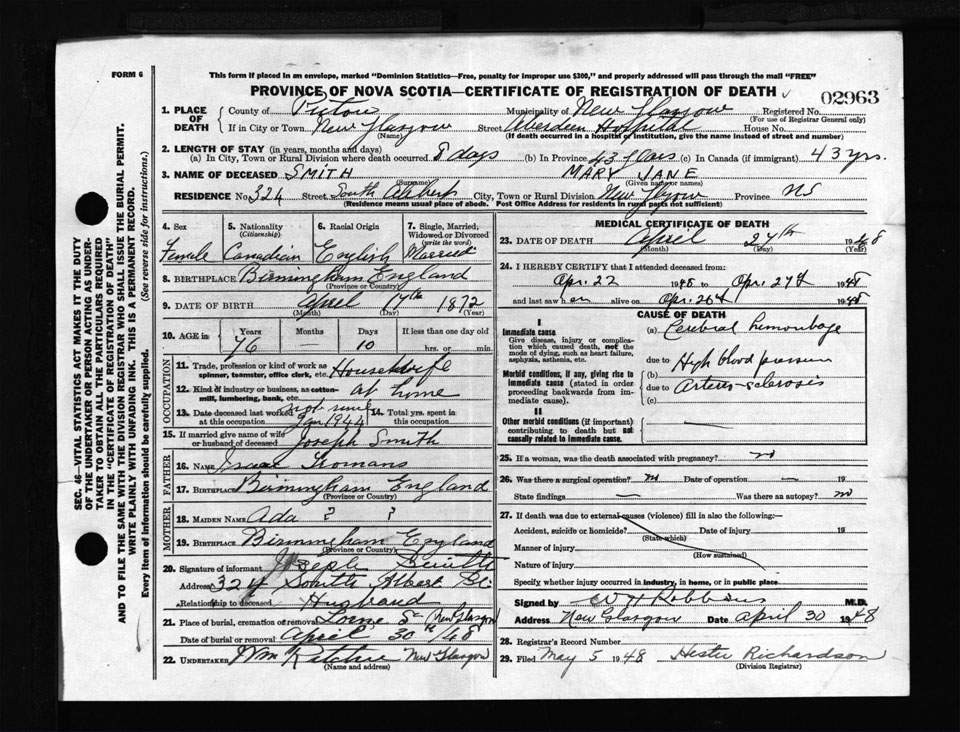 FORM 6
This form if placed in an envelope, marked "Dominion Statistics—Free, penalty for improper use $300," and properly addressed will pass through the mail "FREE"
PROVINCE OF NOVA SCOTIA—CERTIFICATE OF REGISTRATION OF DEATH
02963
1. PLACE OF DEATH
County of Pictou Municipality of New Glasgow Registered No.
(For use of Registrar General only)
If in City or Town New Glasgow Street Aberdeen Hospital House No.
(Name) (If death occurred in a hospital or institution, give the name instead of street and number)
2. LENGTH OF STAY (in years, months and days)
(a) In City, Town or Rural Division where death occurred 8 days (b) In Province 43 years (c) In Canada (if immigrant) 43 yrs.
3. NAME OF DECEASED SMITH MARY JANE
(Surname) (Given name or names)
RESIDENCE No. 324 Street South Albert City, Town or Rural Division New Glasgow Province NS
(Residence means usual place of abode. Post Office Address for residents in rural parts not sufficient)
4. Sex 5. Nationality 6. Racial Origin 7. Single, Married,
(Citizenship) Widowed or Divorced
(write the word)
Female Canadian English Married
8. BIRTHPLACE Birmingham England
(Province or Country)
9. DATE OF BIRTH April 17th 1872
(Month) (Day) (Year)
10. AGE in Years Months Days If less than one day old
76 — 10 hrs. or min.
OCCUPATION
11. Trade, profession or kind of work as Housewife
spinner, teamster, office clerk, etc.
12. Kind of industry or business, as cotton- at home
mill, lumbering, bank, etc.
13. Date deceased last worked not since Jan 1944 14. Total yrs. spent in
at this occupation at this occupation
15. If married give name of wife Joseph Smith
or husband of deceased
FATHER
16. NAME Isaac Homans
17. BIRTHPLACE Birmingham England
(Province or Country)
MOTHER
18. MAIDEN NAME Ada ? ?
19. BIRTHPLACE Birmingham England
(Province or Country)
20. Signature of informant Joseph Smith
Address 324 South Albert St.
Relationship to deceased Husband
21. Place of burial, cremation or removal Lorne St (New Glasgow)
Date of burial or removal April 30th/48
22. UNDERTAKER Wm Ritchie New Glasgow
(Name and address)
MEDICAL CERTIFICATE OF DEATH
23. DATE OF DEATH April 27th 1948
(Month) (Day) (Year)
24. I HEREBY CERTIFY that I attended deceased from:
Apr. 22 1948 to Apr. 27th 1948
and last saw her alive on Apr. 26th 1948
CAUSE OF DEATH
I
Immediate cause (a) Cerebral hemorrhage
Give disease, injury or complica-
tion which caused death, not the
mode of dying, such as heart failure,
asphyxia, asthenia, etc.
due to High blood pressure
Morbid conditions, if any, giving rise to (b)
immediate cause (stated in order due to Arterio-sclerosis
proceeding backwards from im-
mediate cause). (c)
II
Other morbid conditions (if important)
contributing to death but not
causally related to immediate cause. —
25. If a woman, was the death associated with pregnancy? no
26. Was there a surgical operation? no Date of operation — 19
State findings — Was there an autopsy? no
27. If death was due to external causes (violence) fill in also the following:—
Accident, suicide or homicide? Date of injury 19
(State which)
Manner of injury
(How sustained)
Nature of injury
Specify whether injury occurred in industry, in home, or in public place
Signed by W H Robbins M.D.
Address New Glasgow Date April 30 1948
28. Registrar's Record Number
29. Filed May 5 1948 Hester Richardson
(Division Registrar)
SEC. 46—VITAL STATISTICS ACT MAKES IT THE DUTY
OF THE UNDERTAKER OR PERSON ACTING AS UNDER-
TAKER TO OBTAIN ALL THE PARTICULARS REQUIRED
IN THE "CERTIFICATE OF REGISTRATION OF DEATH"
AND TO FILE THE SAME WITH THE DIVISION REGISTRAR WHO SHALL ISSUE THE BURIAL PERMIT.
WRITE PLAINLY WITH UNFADING INK. THIS IS A PERMANENT RECORD.
Every item of information should be carefully supplied. (See reverse side for instructions.)